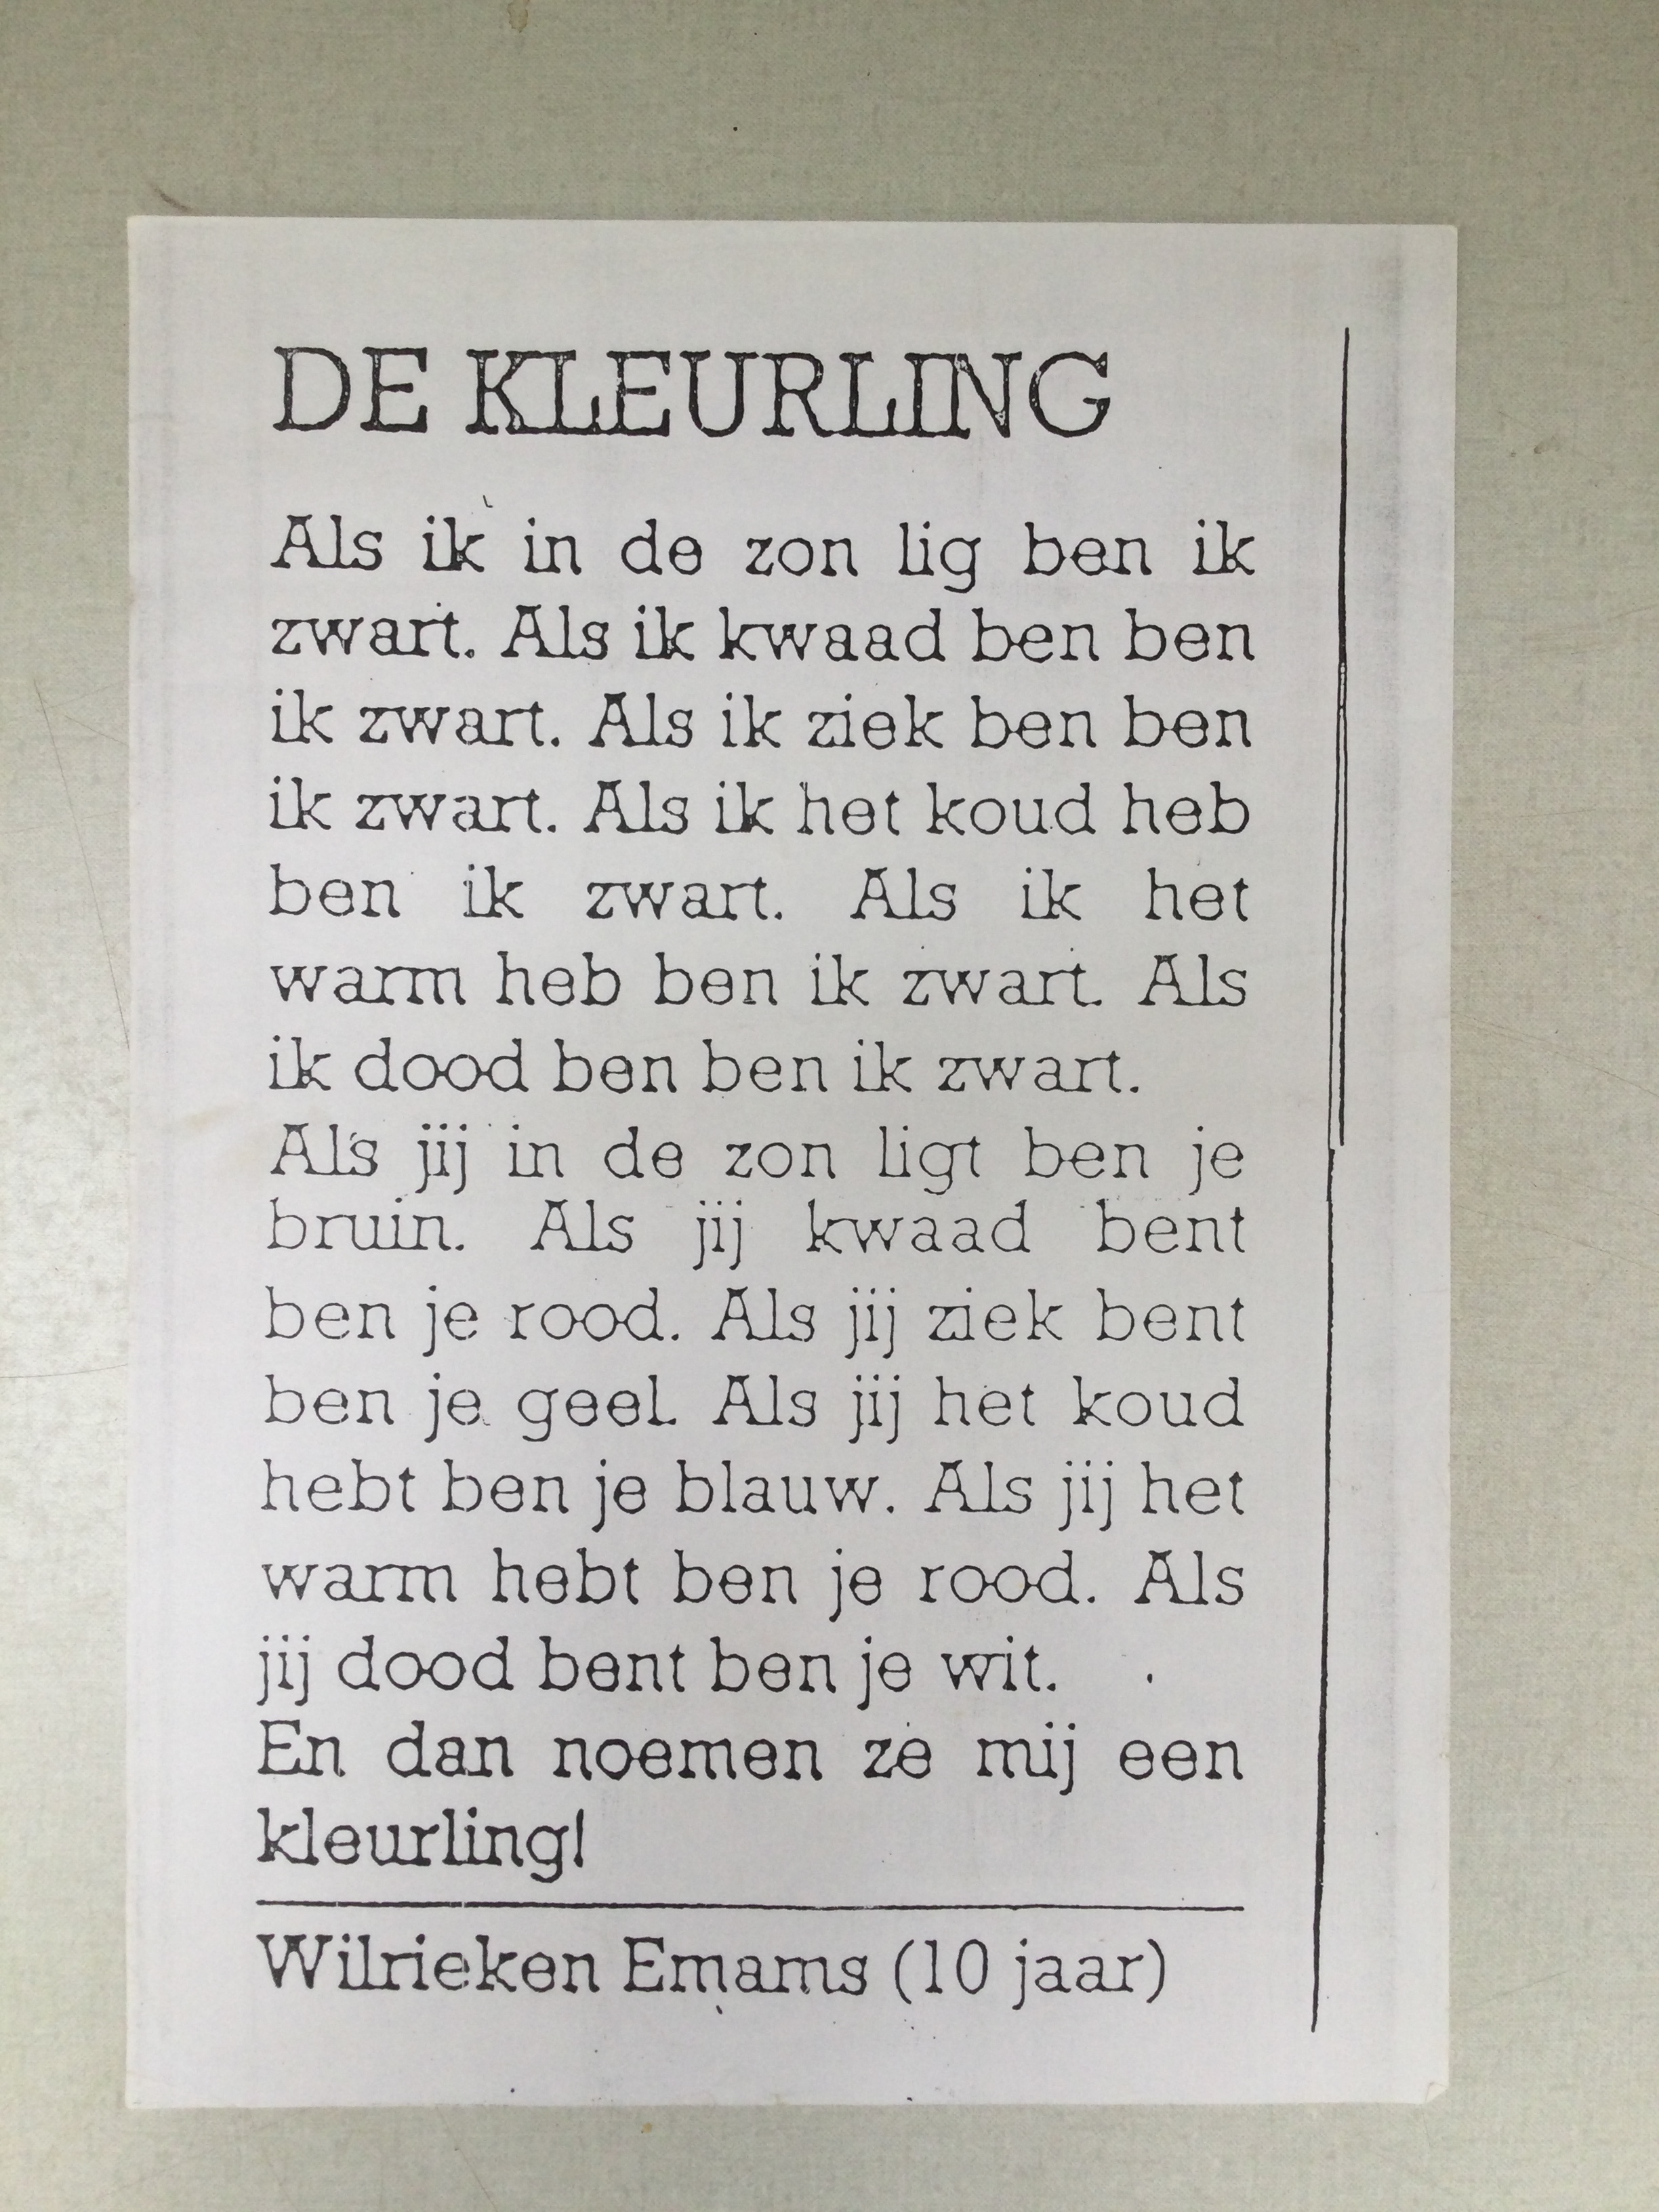 DE KLEURLING
Als ik in de zon lig ben ik
zwart. Als ik kwaad ben ben
ik zwart. Als ik ziek ben ben
ik zwart. Als ik het koud heb
ben ik zwart. Als ik het
warm heb ben ik zwart. Als
ik dood ben ben ik zwart.
Als jij in de zon ligt ben je
bruin. Als jij kwaad bent
ben je rood. Als jij ziek bent
ben je geel. Als jij het koud
hebt ben je blauw. Als jij het
warm hebt ben je rood. Als
jij dood bent ben je wit.
En dan noemen ze mij een
kleurling!
Wilrieken Emams (10 jaar)